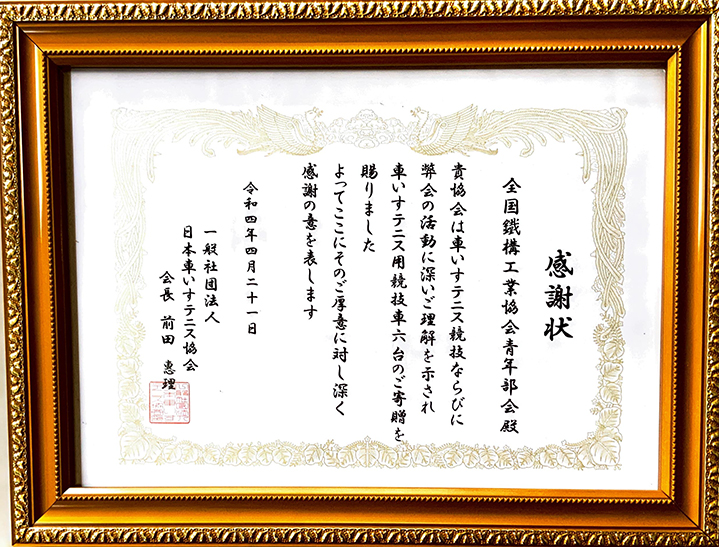 感謝状
全国鐵構工業協会青年部会殿
貴協会は車いすテニス競技ならびに
弊会の活動に深いご理解を示され
車いすテニス用競技車六台のご寄贈を
賜りました
よってここにそのご厚意に対し深く
感謝の意を表します
令和四年四月二十一日
一般社団法人
日本車いすテニス協会
会長 前田 惠理